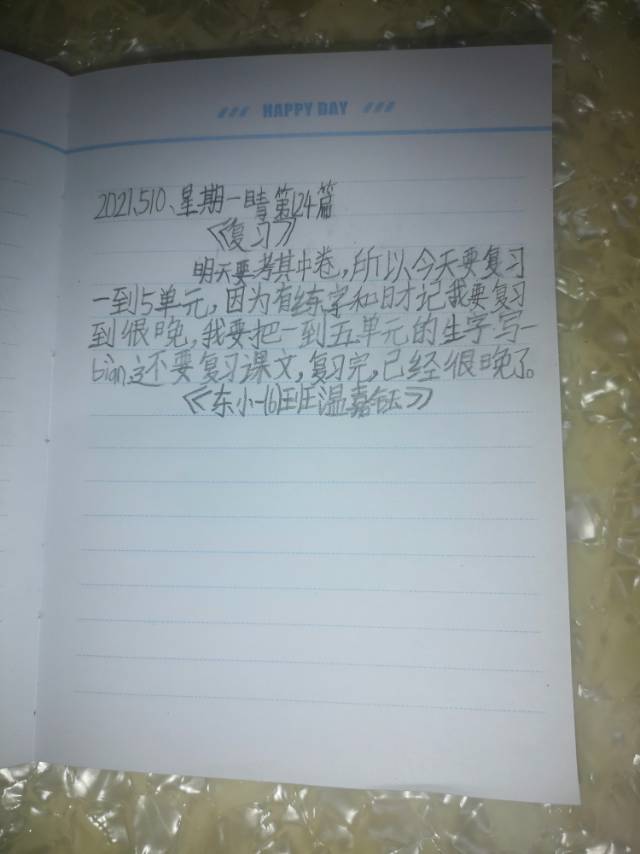 HAPPY DAY
2021.5.10、星期一晴第124篇
《复习》
明天要考其中卷，所以今天要复习
一到5单元，因为有练字和日才记我要复习
到很晚，我要把一到五单元的生字写一
bian，还不要复习课文，复习完，已经很晚了。
《东小一(6)班温嘉钰》